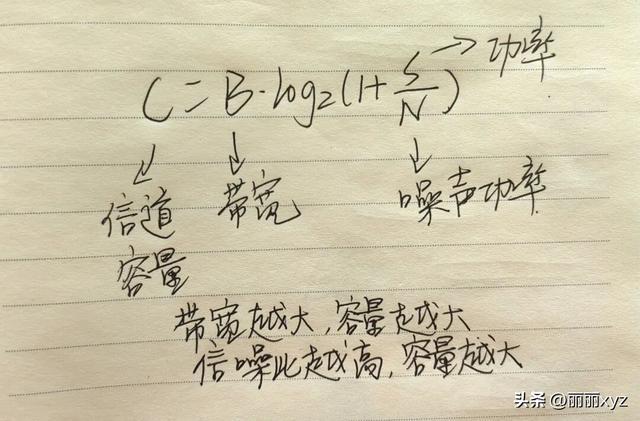 C=B·log₂(1+S/N) → 功率
信道 带宽 噪声功率
容量
带宽越大,容量越大
信噪比越高,容量越大
头条 @丽丽xyz